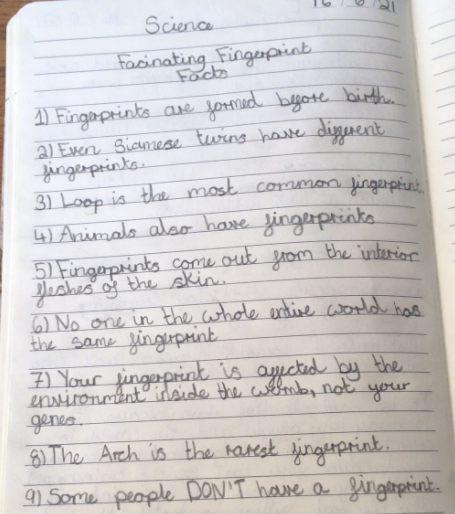 16/6/21
Science
Facinating Fingerprint
Facts
1) Fingerprints are formed before birth.
2) Even Siamese twins have different
fingerprints.
3) Loop is the most common fingerprint.
4) Animals also have fingerprints
5) Fingerprints come out from the interior
fleshes of the skin.
6) No one in the whole entire world has
the same fingerprint
7) Your fingerprint is affected by the
environment inside the womb, not your
genes.
8) The Arch is the rarest fingerprint.
9) Some people DON'T have a fingerprint.